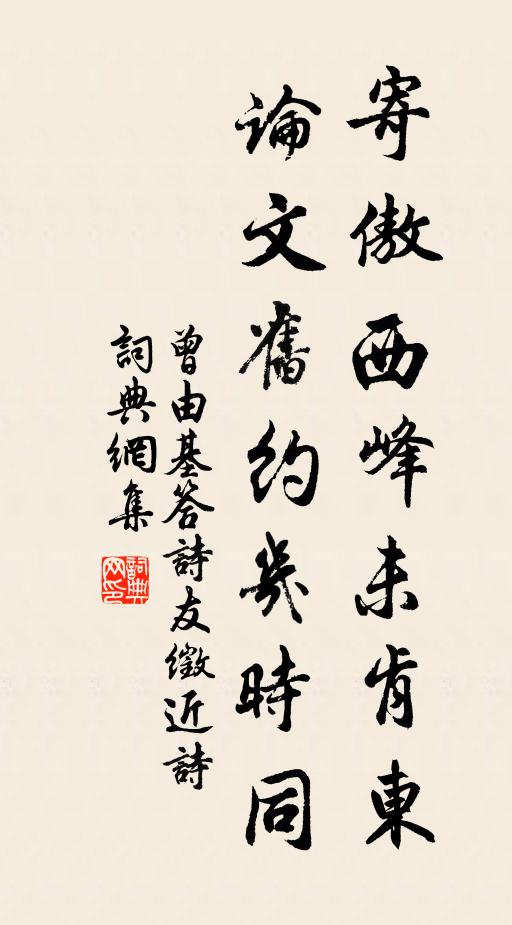 寄傲西峰未肯東
論文舊約幾時同
曾由基答詩友徵近詩
詞典網集
詞典网印